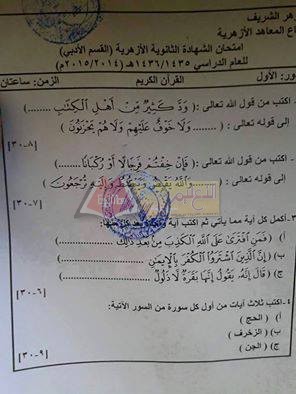 هر الشريف
ع المعاهد الأزهرية
امتحان الشهادة الثانوية الأزهرية (القسم الأدبي)
للعام الدراسي ١٤٣٦/١٤٣٥هـ (٢٠١٥/٢٠١٤م)
ور: الأول القرآن الكريم الزمن: ساعتان
اكتب من قول الله تعالى : ( وَدَّ كَثِيرٌ مِّنْ أَهْلِ الْكِتَابِ .........)
إلى قوله تعالى : ( ........ وَلَا خَوْفٌ عَلَيْهِمْ وَلَا هُمْ يَحْزَنُونَ )
[٣٠-٨]
- اكتب من قول الله تعالى : ( فَإِنْ خِفْتُمْ فَرِجَالًا أَوْ رُكْبَانًا ........)
إلى قوله تعالى ( ........ وَاللَّهُ يَقْبِضُ وَيَبْسُطُ وَإِلَيْهِ تُرْجَعُونَ )
[٣٠-٧]
٣-أكمل كل آية مما يأتي ثم اكتب آية
أ) ( فَمَنِ افْتَرَىٰ عَلَى اللَّهِ الْكَذِبَ مِنْ بَعْدِ ذَٰلِكَ ........)
ب) ( إِنَّ الَّذِينَ اشْتَرَوُا الْكُفْرَ بِالْإِيمَانِ ........)
ج) ( قَالَ إِنَّهُ يَقُولُ إِنَّهَا بَقَرَةٌ لَّا ذَلُولٌ ........)
[٣٠-٦]
٤-اكتب ثلاث آيات من أول كل سورة من السور الآتية:
أ) ( الحج )
ب) ( الزخرف )
ج) ( الجن )
[٣٠-٩]